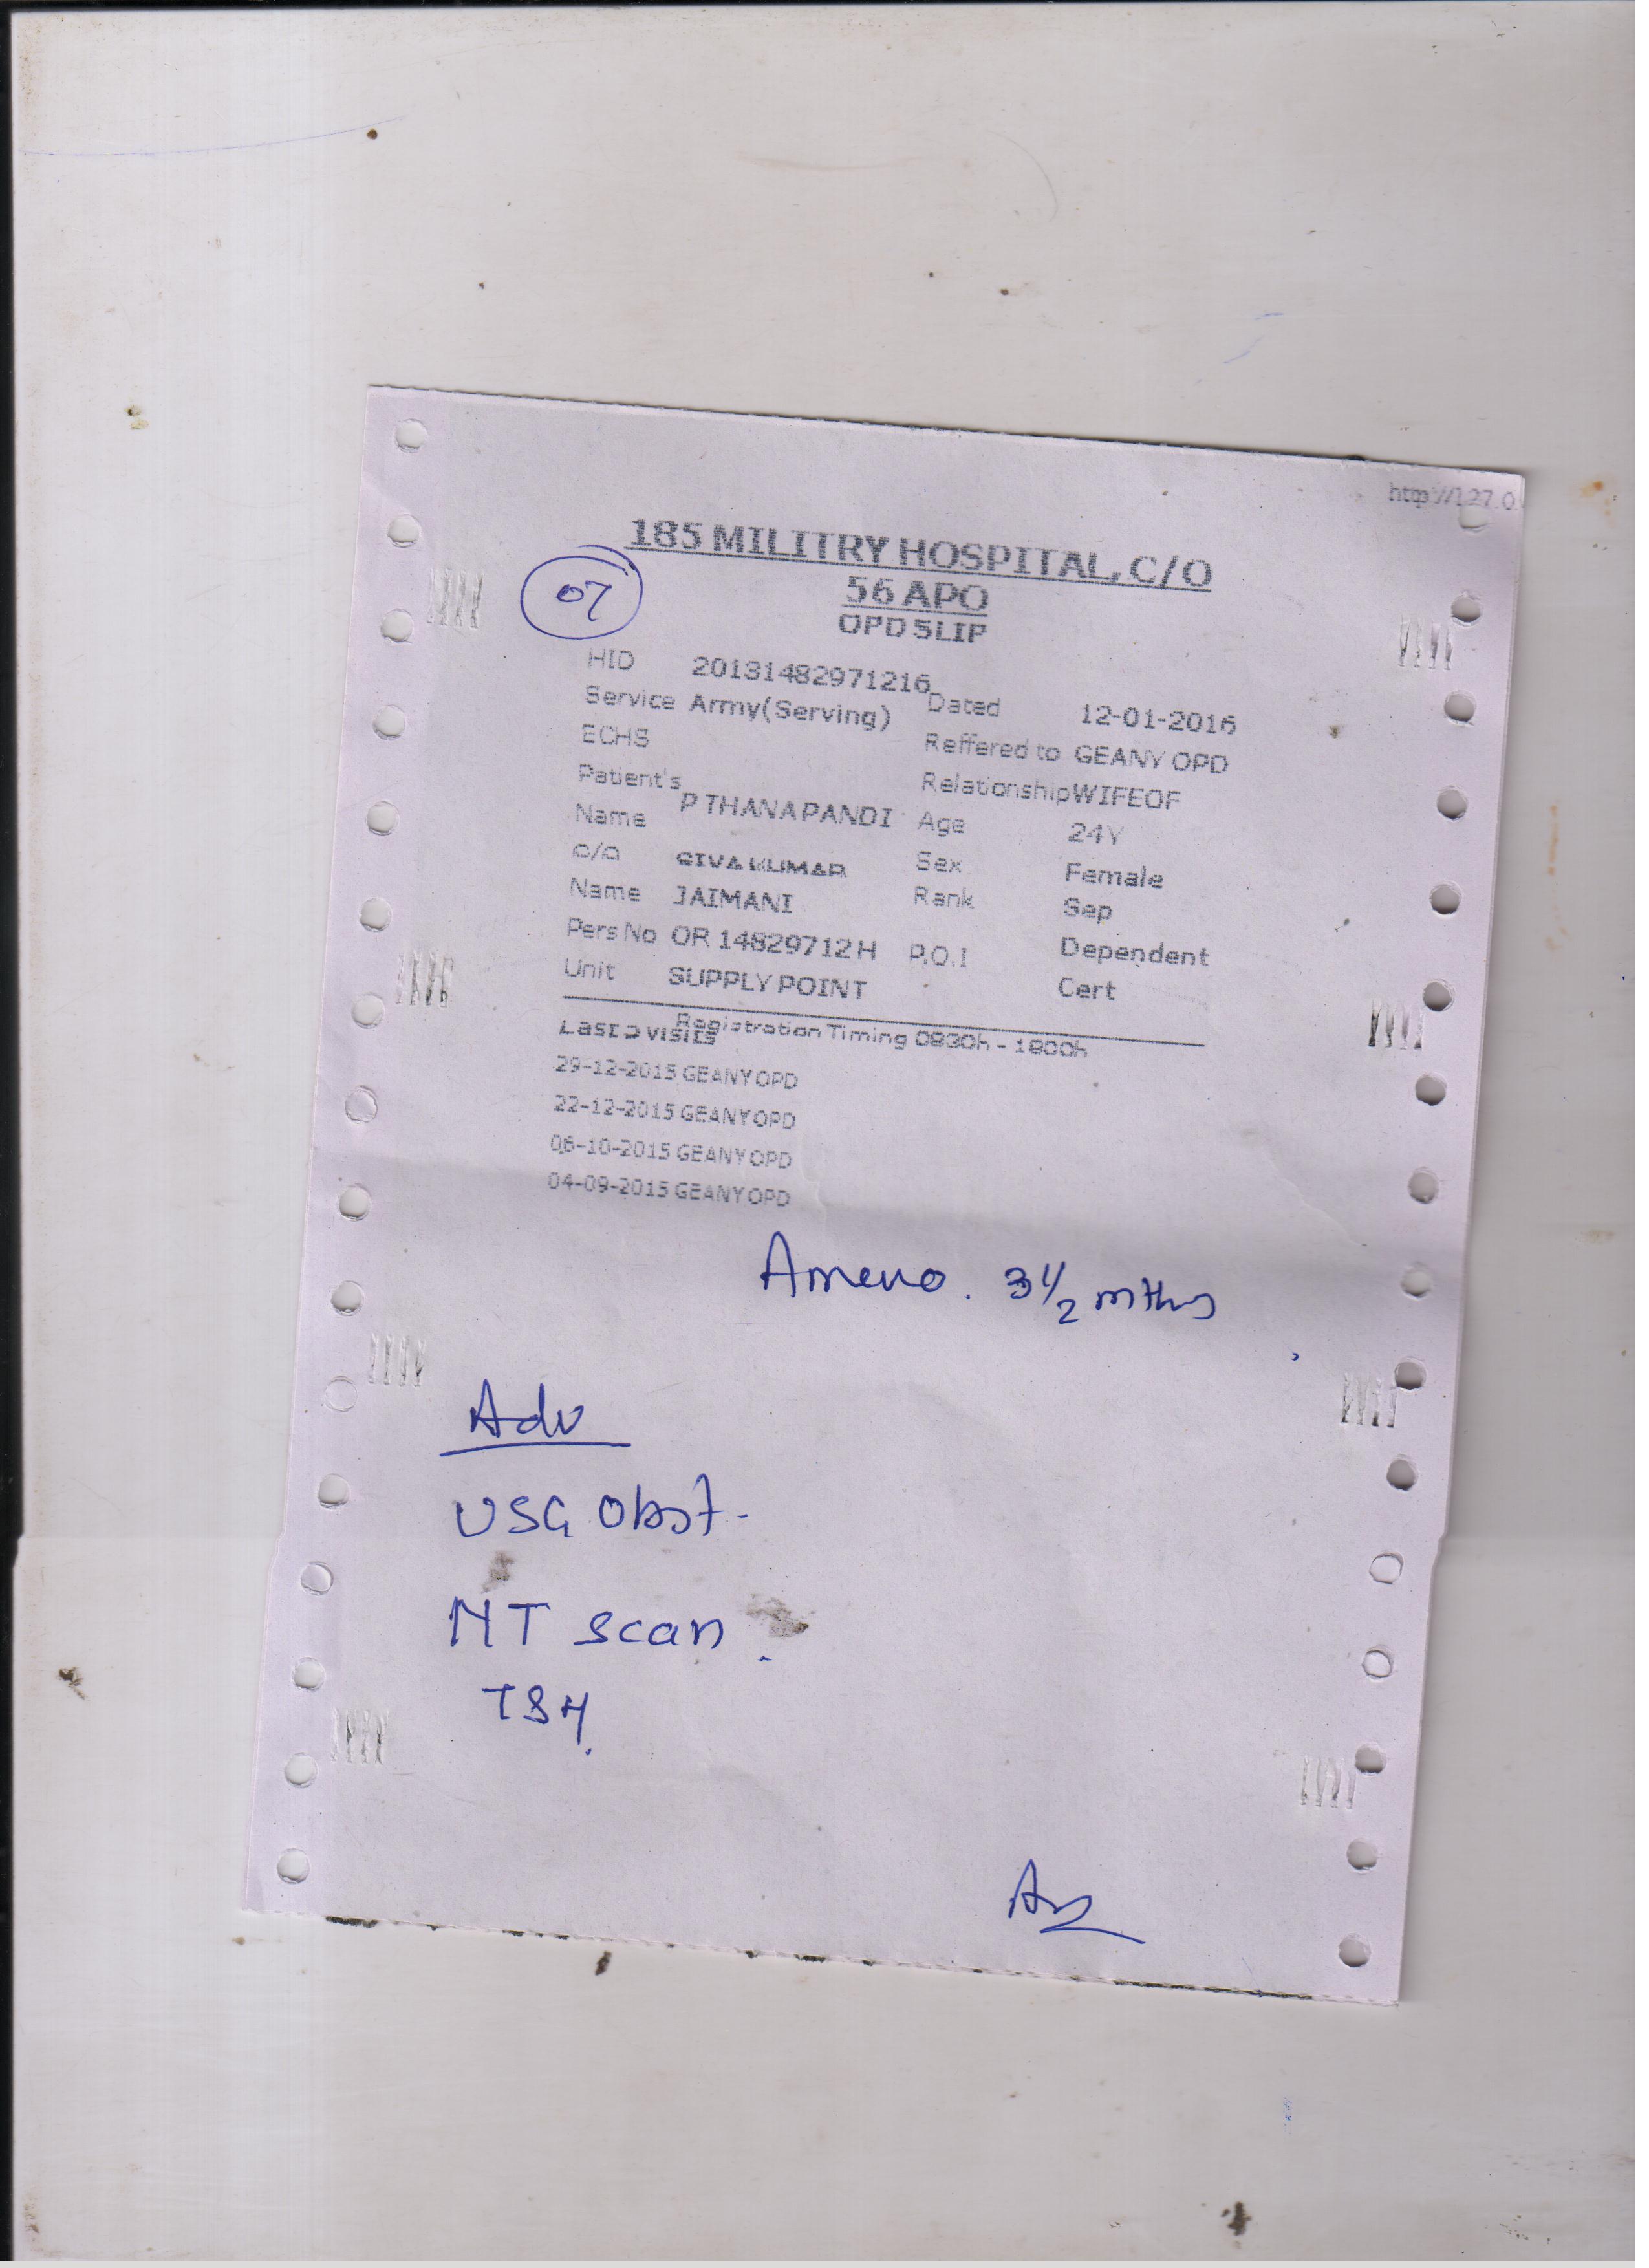 http://127.0
185 MILITRY HOSPITAL, C/O
56 APO
OPD SLIP
07
HID 20131482971216 Dated 12-01-2016
Service Army(Serving) Reffered to GEANY OPD
ECHS RelationshipWIFEOF
Patient's Name P THANAPANDI Age 24Y
C/O Name SIVA KUMAR JAIMANI Sex Female
Rank Sep
Pers No OR 14829712H P.O.I Dependent Cert
Unit SUPPLY POINT
Registration Timing 0830h - 1800h
Last 5 visits
29-12-2015 GEANY OPD
22-12-2015 GEANY OPD
08-10-2015 GEANY OPD
04-09-2015 GEANY OPD
Ameno. 3 1/2 mths
Adv
USG Obst.
NT scan.
TSH.